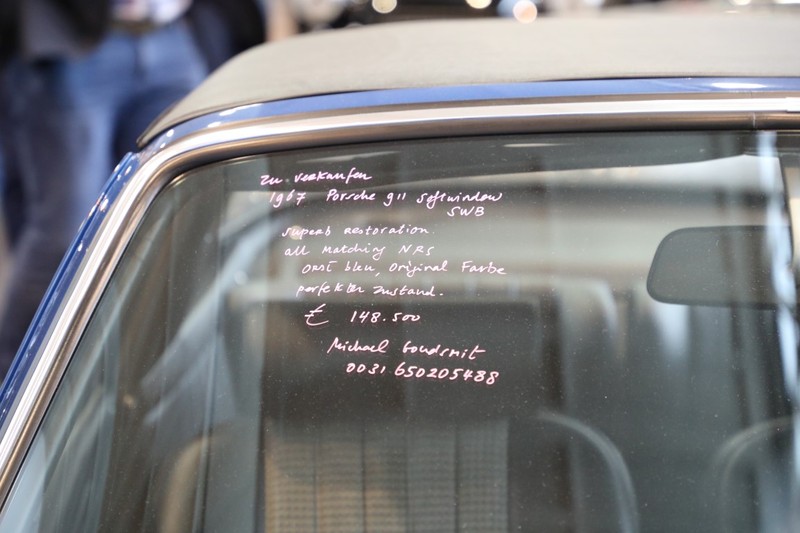 zu verkaufen
1967 Porsche 911 softwindow
SWB
superb restoration.
all Matching NRS
bleu, Original Farbe
perfekter zustand.
€ 148.500
Michael Goudsmit
0031 650205488